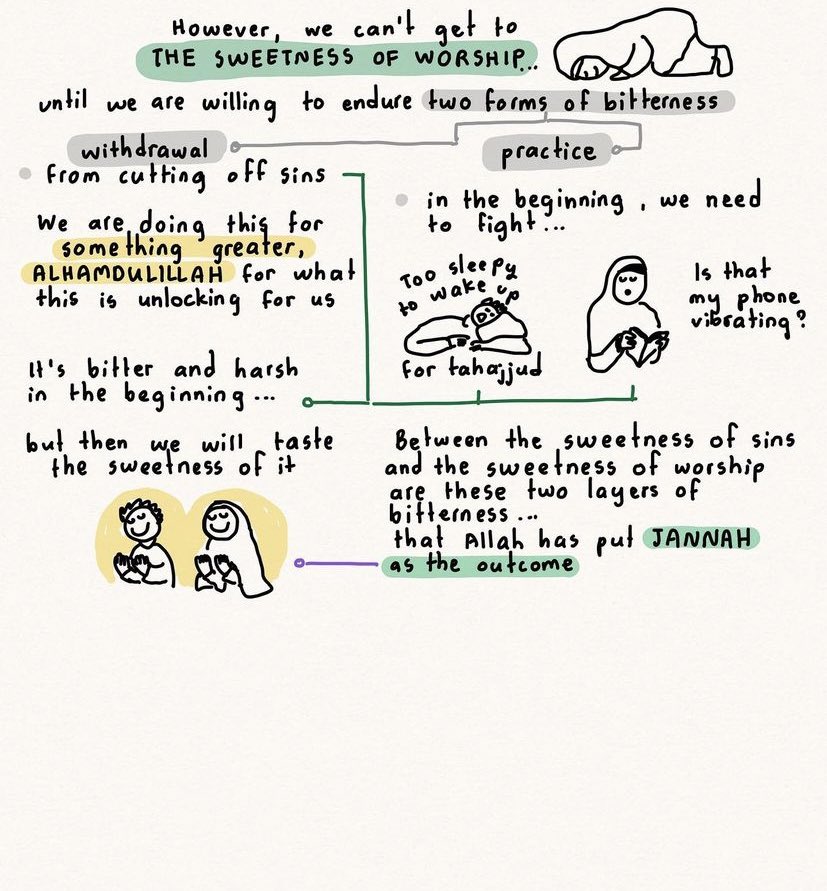 However, we can't get to
THE SWEETNESS OF WORSHIP...
until we are willing to endure two forms of bitterness
withdrawal
from cutting off sins
We are doing this for
something greater,
ALHAMDULILLAH for what
this is unlocking for us
practice
in the beginning, we need
to fight...
Too sleepy
to wake up
for tahajjud
Is that
my phone
vibrating?
It's bitter and harsh
in the beginning...
but then we will taste
the sweetness of it
Between the sweetness of sins
and the sweetness of worship
are these two layers of
bitterness...
that Allah has put JANNAH
as the outcome